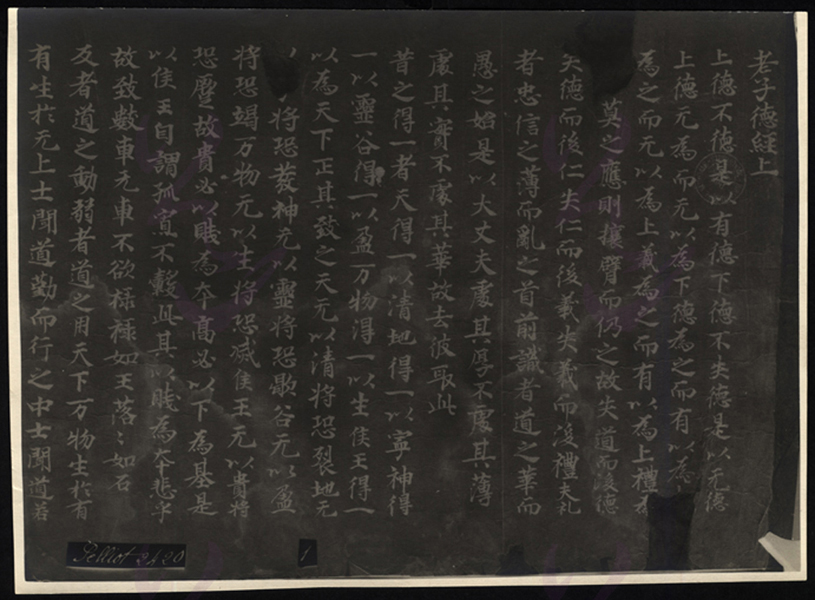 老子德経上
上德不德是以有德下德不失德是以无德
上德无爲而无以爲下德爲之而有以爲
爲之而无以爲上義爲之而有以爲上禮爲
莫之應則攘臂而仍之故失道而後德
失德而後仁失仁而後義失義而後禮夫礼
者忠信之薄而亂之首前識者道之華而
愚之始是以大丈夫處其厚不處其薄
處其實不處其華故去彼取此
昔之得一者天得一以清地得一以寧神得
一以靈谷得一以盈万物得一以生侯王得一
以為天下正其致之天无以清將恐裂地无
以 將恐發神无以靈將恐歇谷无以盈
將恐竭万物无以生將恐滅侯王无以貴將
恐蹷故貴必以賤為本高必以下為基是
以侯王自謂孤寡不轂此其以賤為本悲乎
故致數車无車不欲祿祿如玉落〻如石
反者道之動弱者道之用天下万物生於有
有生於无上士聞道勤而行之中士聞道若
Pelliot 2420
1